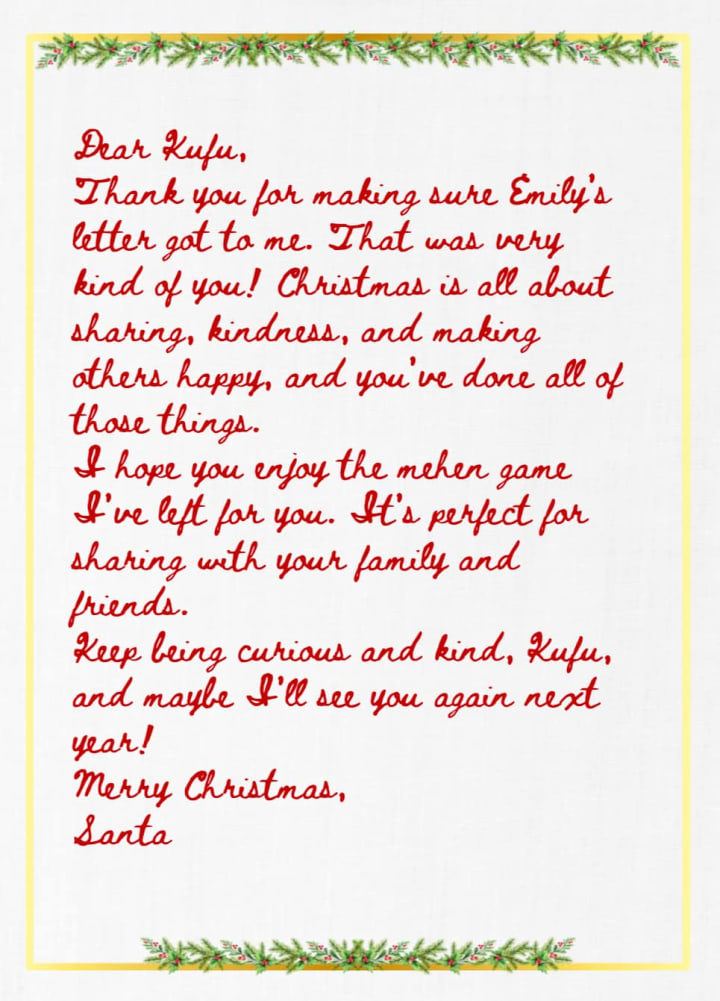 Dear Kufu,
Thank you for making sure Emily's
letter got to me. That was very
kind of you! Christmas is all about
sharing, kindness, and making
others happy, and you've done all of
those things.
I hope you enjoy the mehen game
I've left for you. It's perfect for
sharing with your family and
friends.
Keep being curious and kind, Kufu,
and maybe I'll see you again next
year!
Merry Christmas,
Santa